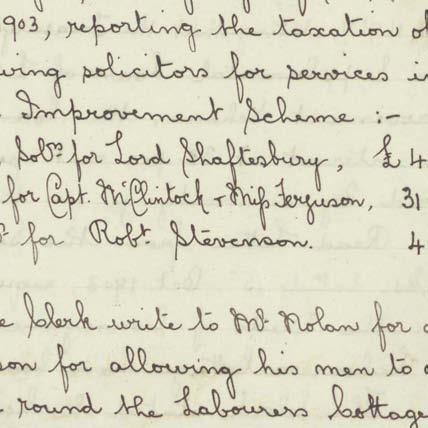 1903, reporting the taxation of
wing solicitors for services i
Improvement Scheme :-
Solrs for Lord Shaftesbury, £4
for Capt. McClintock & Miss Ferguson, 31
for Robt. Stevenson. 4
e Clerk write to Mr. Nolan for
son for allowing his men to
round the Labourers Cottage